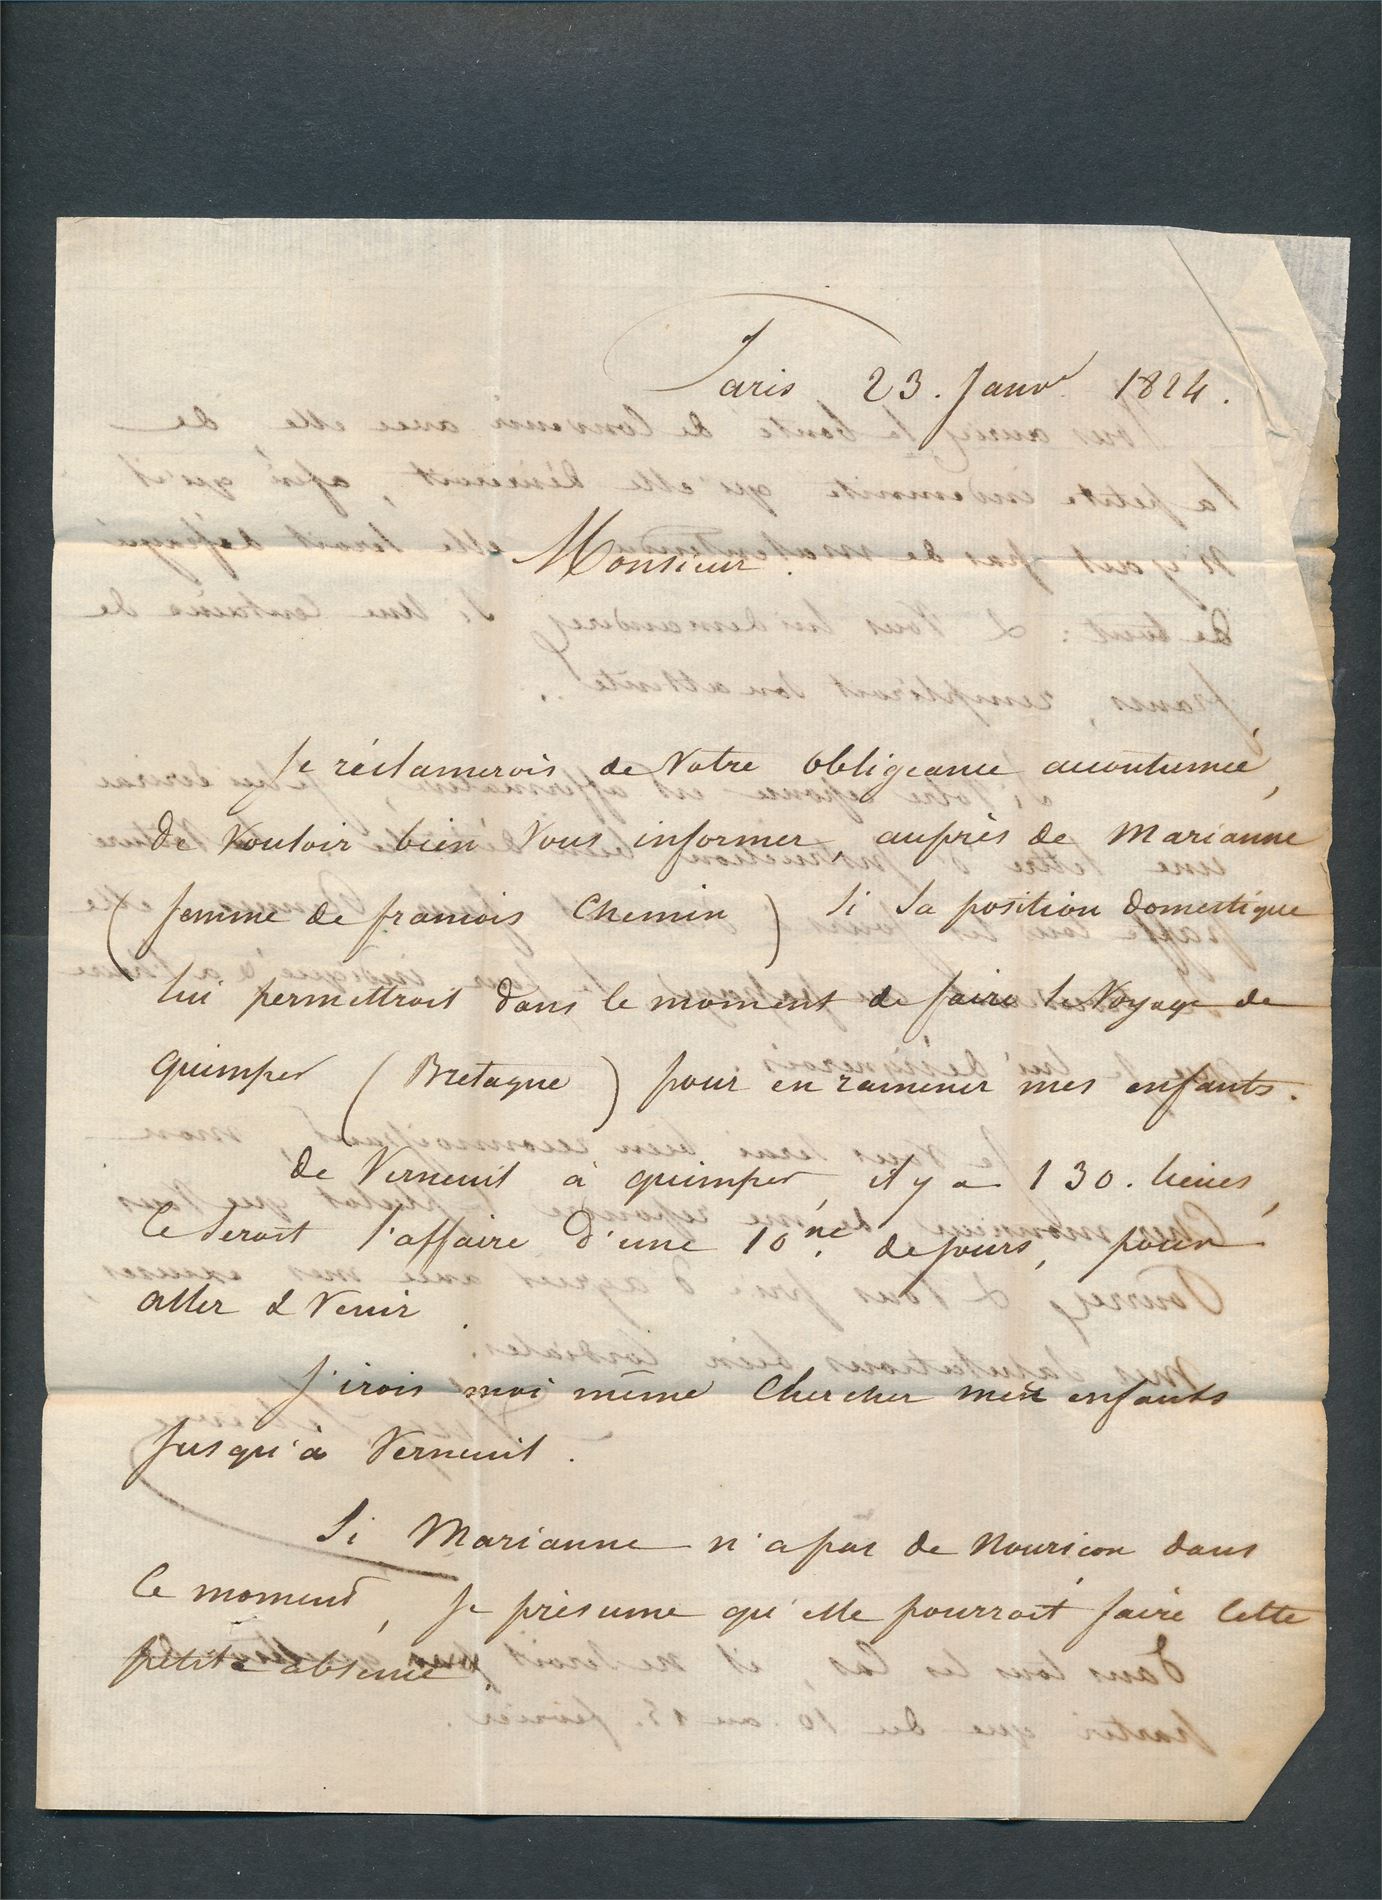 Paris 23. Janv.r 1824.
Monsieur.
Je réclamerois de Votre obligeance accoutumée,
de Vouloir bien Vous informer auprès de Marianne
(femme de francois Chemin) Si Sa position domestique
lui permettroit dans le moment de faire le Voyage de
quimper (Bretagne) pour en ramener mes enfants.
de Verneuil à quimper, il y a 130. lieues,
Ce Seroit l'affaire d'une 10.ne de jours, pour
aller & Venir.
J'irois moi même Chercher mes enfants
Jusqu'à Verneuil.
Si Marianne n'a pas de Nouricon dans
Ce moment, Je présume qu'elle pourroit faire Cette
petite absence.